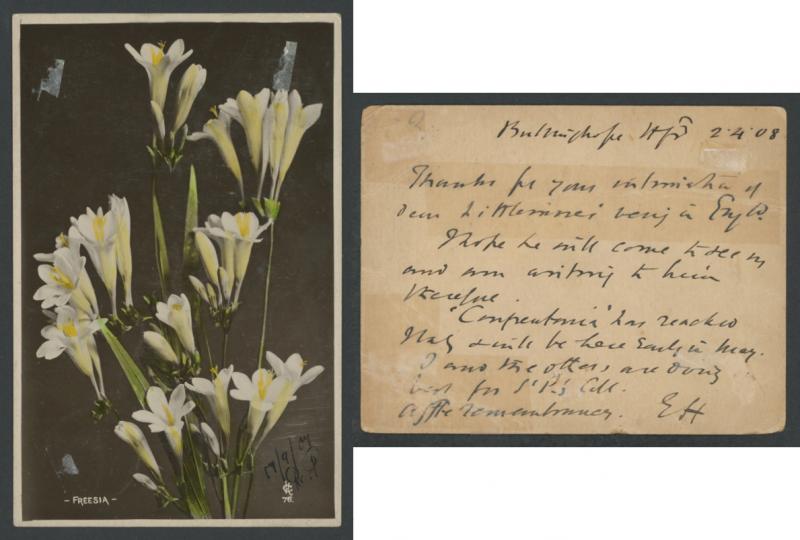 - FREESIA -
76.
2.4.08
Thanks for your intimation of
dear Littlemore's being in Engld.
I hope he will come to see us
and am writing to him
therefore.
has reached
Italy & will be here early in May.
I and the others are doing
best for St P's Coll.
Affte remembrances. EH